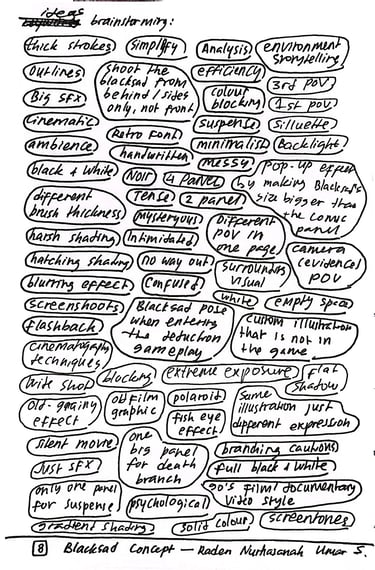 ideas
brainstorming:
thick strokes
simplify
Analysis
environment
storytelling
outlines
shoot the
blacksad from
behind/sides
only, not front
efficiency
3rd POV
Big SFX
colour
blocking
1st POV
cinematic
Retro Font
suspense
silluette
ambience
handwritten
minimalist
Backlight
black & white
Noir
4 panel
messy
Pop-up effect
by making Blacksad's
size bigger than
the comic
panel
different
brush thickness
Tense
2 panel
mysteryous
Different
POV in
one page
harsh shading
Intimidated
camera
(evidence)
POV
hatching shading
no way out
surrounding
visual
blurring effect
Confused
white
empty space
screenshoots
Blacksad pose
when entering
the deduction
gameplay
custom illustration
that is not in
the game
flashback
cinematography
techniques
blocking
extreme exposure
flat
shadow
wide shot
old film
graphic
polaroid
same
illustration just
different expression
old-grainy
effect
fish eye
effect
silent movie
one
big panel
for death
branch
branding cautions
Just SFX
full black & white
only one panel
for suspense
psychological
90's film/documentary
video style
gradient shading
solid colour
screentones
8 Blacksad Concept — Raden Nurhasanah Umar S.